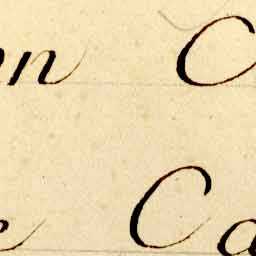 on C
e Ca